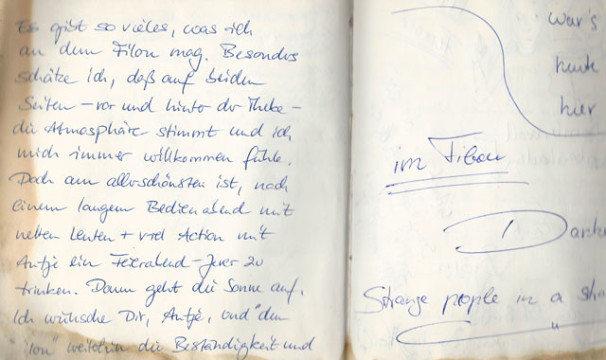 Es gibt so vieles, was ich
an dem Filou mag. Besonders
schätze ich, daß auf beiden
Seiten – vor und hinter der Theke –
die Atmosphäre stimmt und ich
mich immer willkommen fühle.
Doch am allerschönsten ist, nach
einem langem Bedienabend mit
netten Leuten + viel Action mit
Antje ein Feierabend-Jever zu
trinken. Dann geht die Sonne auf.
Ich wünsche Dir, Antje, und "dem
weiterhin die Beständigkeit und
war's
heute
hier
im Filou
!
Danke
Strange people in a